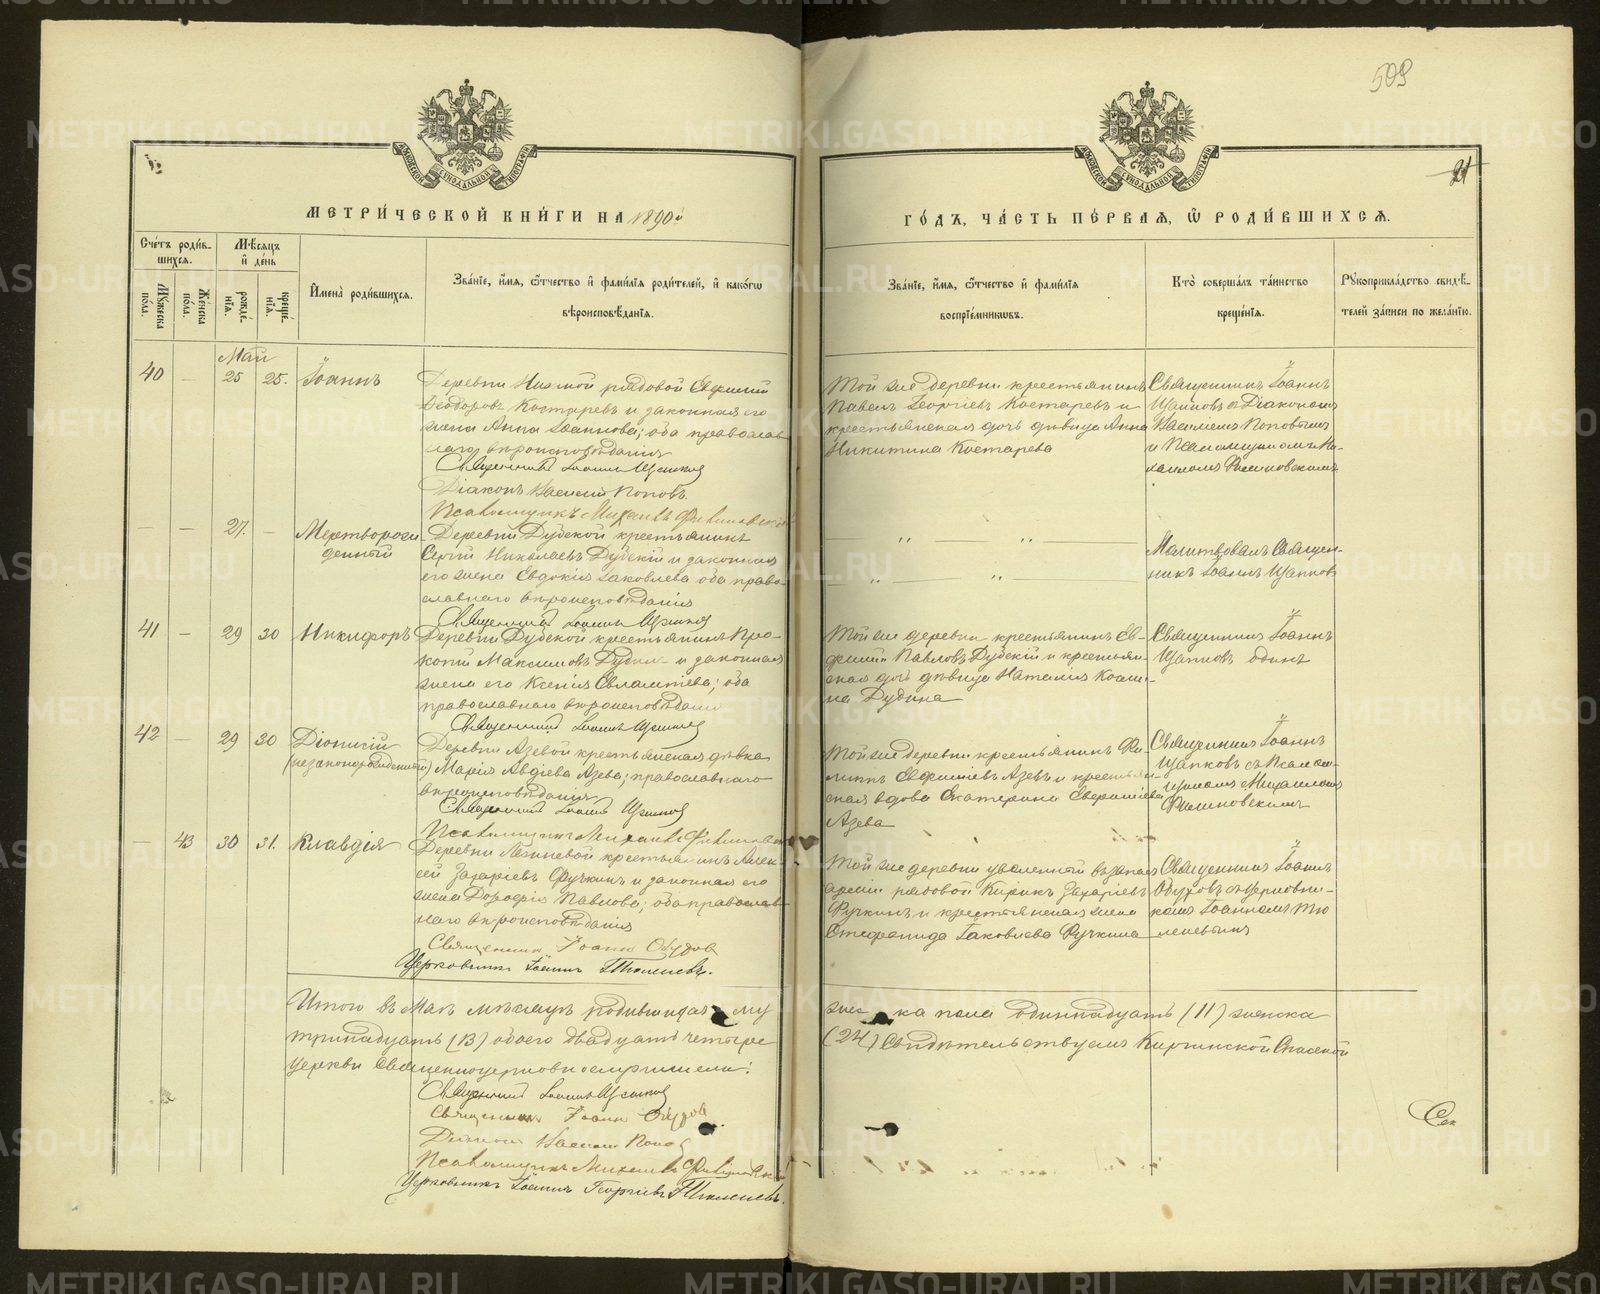 509
21
МЕТРИ́ЧЕСКОЙ КНИ́ГИ НА 1890й
ГО́ДЪ, ЧА́СТЬ ПЕ́РВАЯ, Ѡ РОДИ́ВШИХСЯ.
Сче́тъ роди́в-
шихся.
Мꙋжеска
по́ла.
Же́нска
по́ла.
Мѣсяцъ
и де́нь
рожде́-
нїя.
креще́-
нїя.
Имена̀ роди́вшихся.
Зва́нїе, и́мя, ѻ́тчество и фами́лїя роди́телей, и како́гѡ
вѣроисповѣ́данїя.
Зва́нїе, и́мя, ѻ́тчество и фами́лїя
воспрїе́мникѡвъ.
Кто̀ соверша́лъ та́инство
креще́нїя.
Рꙋкоприкла́дство свидѣ́-
телей за́писи по жела́нїю.
Май
40 — 25 25. Іоаннъ
Деревни Нижной рядовой Евфимий
Ѳеодоровъ Костаревъ и законная его
жена Анна Іоаннова; оба православ-
наго вѣроисповѣданія
Священникъ Іоаннъ Щапковъ
Діаконъ Василій Поповъ.
Псаломщикъ Михаилъ Филиновскій
Той же деревни крестьянинъ
Павелъ Георгіевъ Костаревъ и
крестьянская дочь дѣвица Анна
Никитина Костарева
Священникъ Іоаннъ
Щапковъ съ Діакономъ
Василіемъ Поповымъ
и Псаломщикомъ Ми-
хаиломъ Филиновскимъ
— — 27. — Мертворож-
денный
Деревни Дубской крестьянинъ
Сергій Николаевъ Дубскій и законная
его жена Евдокія Іаковлева оба право-
славнаго вѣроисповѣданія
Священникъ Іоаннъ Щапковъ
— „ — „ —
— „ — „ —
Молитвовалъ Священ-
никъ Іоаннъ Щапковъ
41 — 29 30 Никифоръ
Деревни Дубской крестьянинъ Про-
копій Максимовъ Дубин- и законная
жена его Ксенія Евлампіева; оба
православнаго вѣроисповѣданія
Священникъ Іоаннъ Щапковъ
Той же деревни крестьянинъ Ев-
фимій Павловъ Дубскій и крестьян-
ская дочь дѣвица Наталія Косми-
на Дубина
Священникъ Іоаннъ
Щапковъ одинъ
42 — 29 30 Діонисій
(незаконорожденный)
Деревни Азевой крестьянская дѣвка
Марія Авдіева Азева; православнаго
вѣроисповѣданія
Священникъ Іоаннъ Щапковъ
Псаломщикъ Михаилъ Филиновскій
Той же деревни крестьянинъ Фи-
липпъ Евфиміевъ Азевъ и крестьян-
ская вдова Екатерина
Азева
Священникъ Іоаннъ
Щапковъ съ Псалом-
щикомъ Михаиломъ
Филиновскимъ
— 43 30 31. Клавдія
Деревни крестьянинъ Алек-
сѣй Захаріевъ Ручкинъ и законная его
жена Дороѳея Павлова; оба православ-
наго вѣроисповѣданія
Священникъ Іоаннъ Обуховъ
Церковникъ Іоаннъ Тюленевъ.
Той же деревни уволенной въ запасъ
арміи рядовой Кирикъ Захаріевъ
Ручкинъ и крестьянская жена
Стефанида Іаковлева Ручкина
Священникъ Іоаннъ
Обуховъ съ церковни-
комъ Іоанномъ Тю
леневымъ
Итого въ Маѣ мѣсяцѣ родившихся му
жес ка пола одиннадцать (11) женска
тринадцать (13) обоего двадцать четыре
(24) Свидѣтельствуемъ Киргинской Спасской
церкви Священноцерковнослужители:
Священникъ Іоаннъ Щапковъ
Священникъ Іоаннъ Обуховъ
Діаконъ Василій Поповъ
Псаломщикъ Михаилъ Филиновскій
Церковникъ Іоаннъ Георгіевъ Тюленевъ.
METRIKI.GASO-URAL.RU